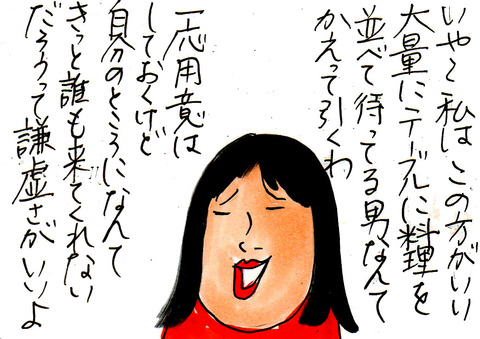 いや〜私はこの方がいい
大量にテーブルに料理を
並べて待ってる男なんて
かえって引くわ
一応用意は
しておくけど
自分のところになんて
きっと誰も来てくれない
だろうって謙虚さがいいよ